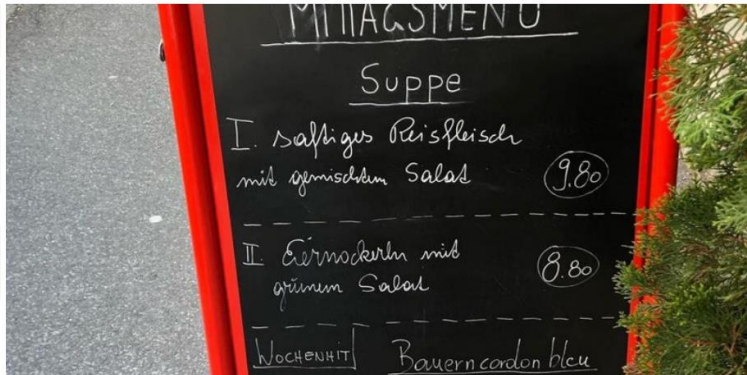 MITTAGSMENÜ
Suppe
I. saftiges Reisfleisch
mit gemischtem Salat 9.80
II. Eiernockerln mit
grünem Salat 8.80
WOCHENHIT Bauerncordon bleu